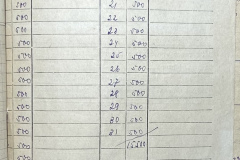 500 21 500
500 22 500
500 23 500
500 24 500
500 25 500
500 26 500
500 27 500
500 28 500
500 29 500
500 30 500
500 31 500
15500